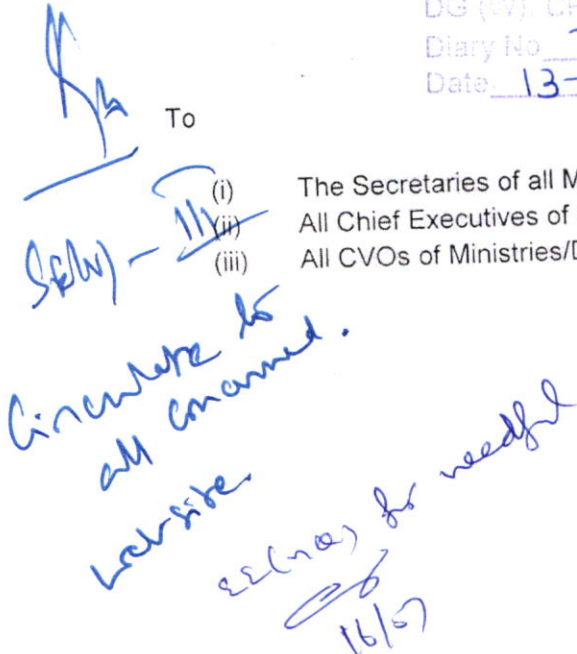 DG (
Diary No
Date 13-
To
(i) The Secretaries of all M
(ii) All Chief Executives of
(iii) All CVOs of Ministries/D
SE(W) - III
Circulate to
all concerned.
website.
for needful
16/07